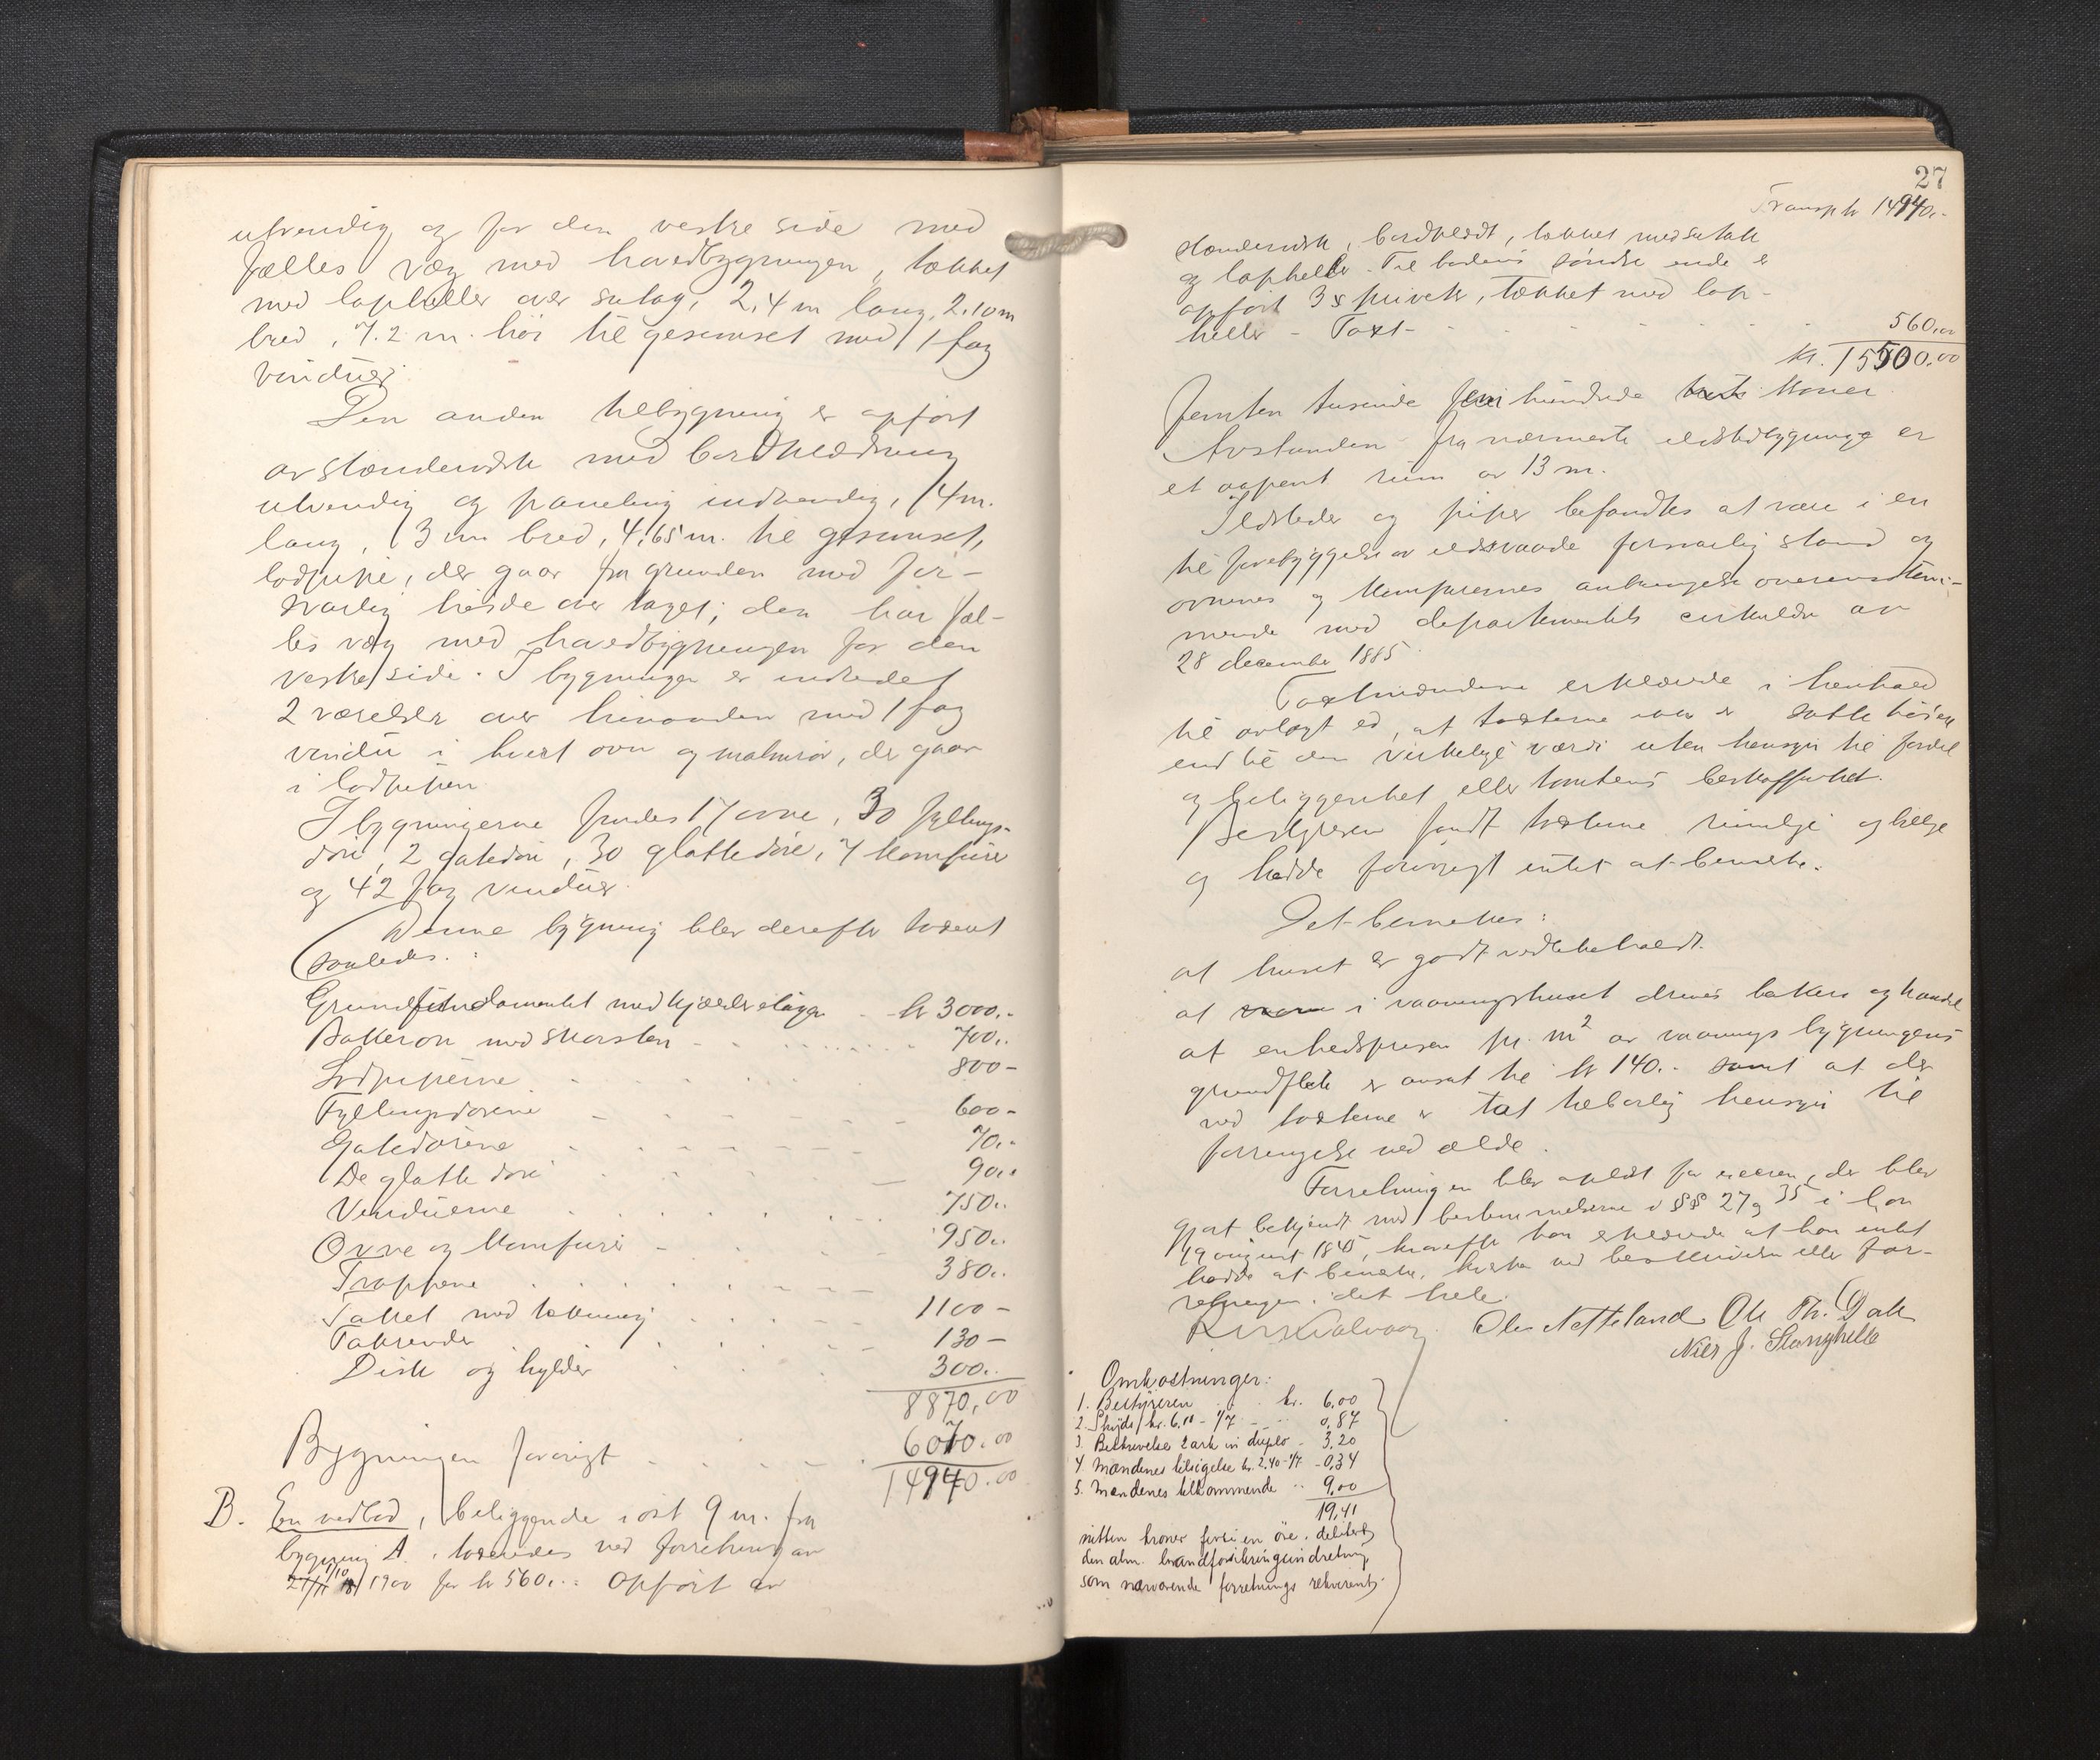 utvendig og for den vestre side med
fælles væg med hovedbygningen, tækket
med lapheller over sutag, 2,4 m lang, 2.10 m
bred, 7.2 m. høi til gesimset med 1 fag
vinduer.
Den anden tilbygning er opført
av stænderverk med bordklædning
utvendig og paneling indvendig, 4 m.
lang, 3 m bred, 4,65 m. til gesimset,
lodpipe, der gaar fra grunden med for-
svarlig høide over taget; den har fæl-
les væg med hovedbygningen for den
vestre side. I bygningen er indredet
2 værelser over hinanden med 1 fag
vindu i hvert ovn og malmrør, der gaar
i lodpipen
I bygningerne findes 17 ovne, 30 fyllings-
døre, 2 gatedøre, 30 glatte døre, 7 komfurer
og 42 fag vinduer.
Denne bygning blev derefter taxeret
saaledes:
Grundfundamentet med kjælderetage kr 3000.-
Bakerovn med skorsten 700.-
Lodpiperne 800-
Fyllingsdørene 600-
Gatedørene 70.-
De glatte døre 90.-
Vinduerne 750.-
Ovne og komfurer 950.-
Trappene 380.-
Taket med tækning 1100-
Takrender 130-
Disk og hylder 300.-
8870,00
Bygningen forøvrigt 6070.00
14940.00
B. En vedbod, beliggende i øst 9 m. fra
bygning A. taxeredes ved forretning av
1/10 1900 for kr 560.-. Opført av
27
Transph 14940.-
stænderverk, bordklædt, tækket med sutak
og lapheller. Til bodens søndre ende er
opført 3 privet, tækket med lap-
heller - Taxt 560,00
Kr. 15500.00
Femten tusinde fem hundrede kroner
Avstanden fra nærmeste ildstedbygning er
et aapent rum av 13 m.
Ildsteder og piper befandtes at være i en
til forebyggelse av ildsvaade forsvarlig stand og
ovnenes og komfurernes anbringelse overensstem-
mende med departementets cirkulær av
28 december 1885.
Taxtmændene erklærede i henhold
til avlagt ed, at taxterne ikke er satte høiere
end til den virkelige værdi uten hensyn til fordel
og beliggenhet eller tomtens beskaffenhet.
Bestyreren fandt taxterne rimelige og billige
og hadde forøvrigt intet at bemerke.
Det bemerkes:
at huset er godt vedlikeholdt.
at i vaaningshuset drives bakeri og handel
at enhedsprisen pr. m2 av vaaningsbygningens
grundflate er ansat til kr 140.- samt at der
ved taxterne er tat tilbørlig hensyn til
forringelse ved ælde.
Forretningen blev oplæst for eieren, der blev
gjort bekjendt med bestemmelserne i §§ 27 og 35 i lov
19 august 1845, hvorefter han erklærede at han intet
hadde at bemerke, hverken ved beskrivelsen eller for-
retningen i det hele.
Ole Natteland Ole Th. Dale
Nils J. Stanghelle
Omkostninger:
1. Bestyreren kr. 6,00
2. Skyds kr. 6.10 - 1/7 0,87
3. Beskrivelse 2 ark in duplo 3,20
4 Mændenes tilsigelse kr. 2.40 - 1/7 - 0,34
5. Mændenes tilkommende 9,00
19,41
nitten kroner firti en øre, debitert
den alm. brandforsikringsindretning
som nærværende forretnings rekvirent.